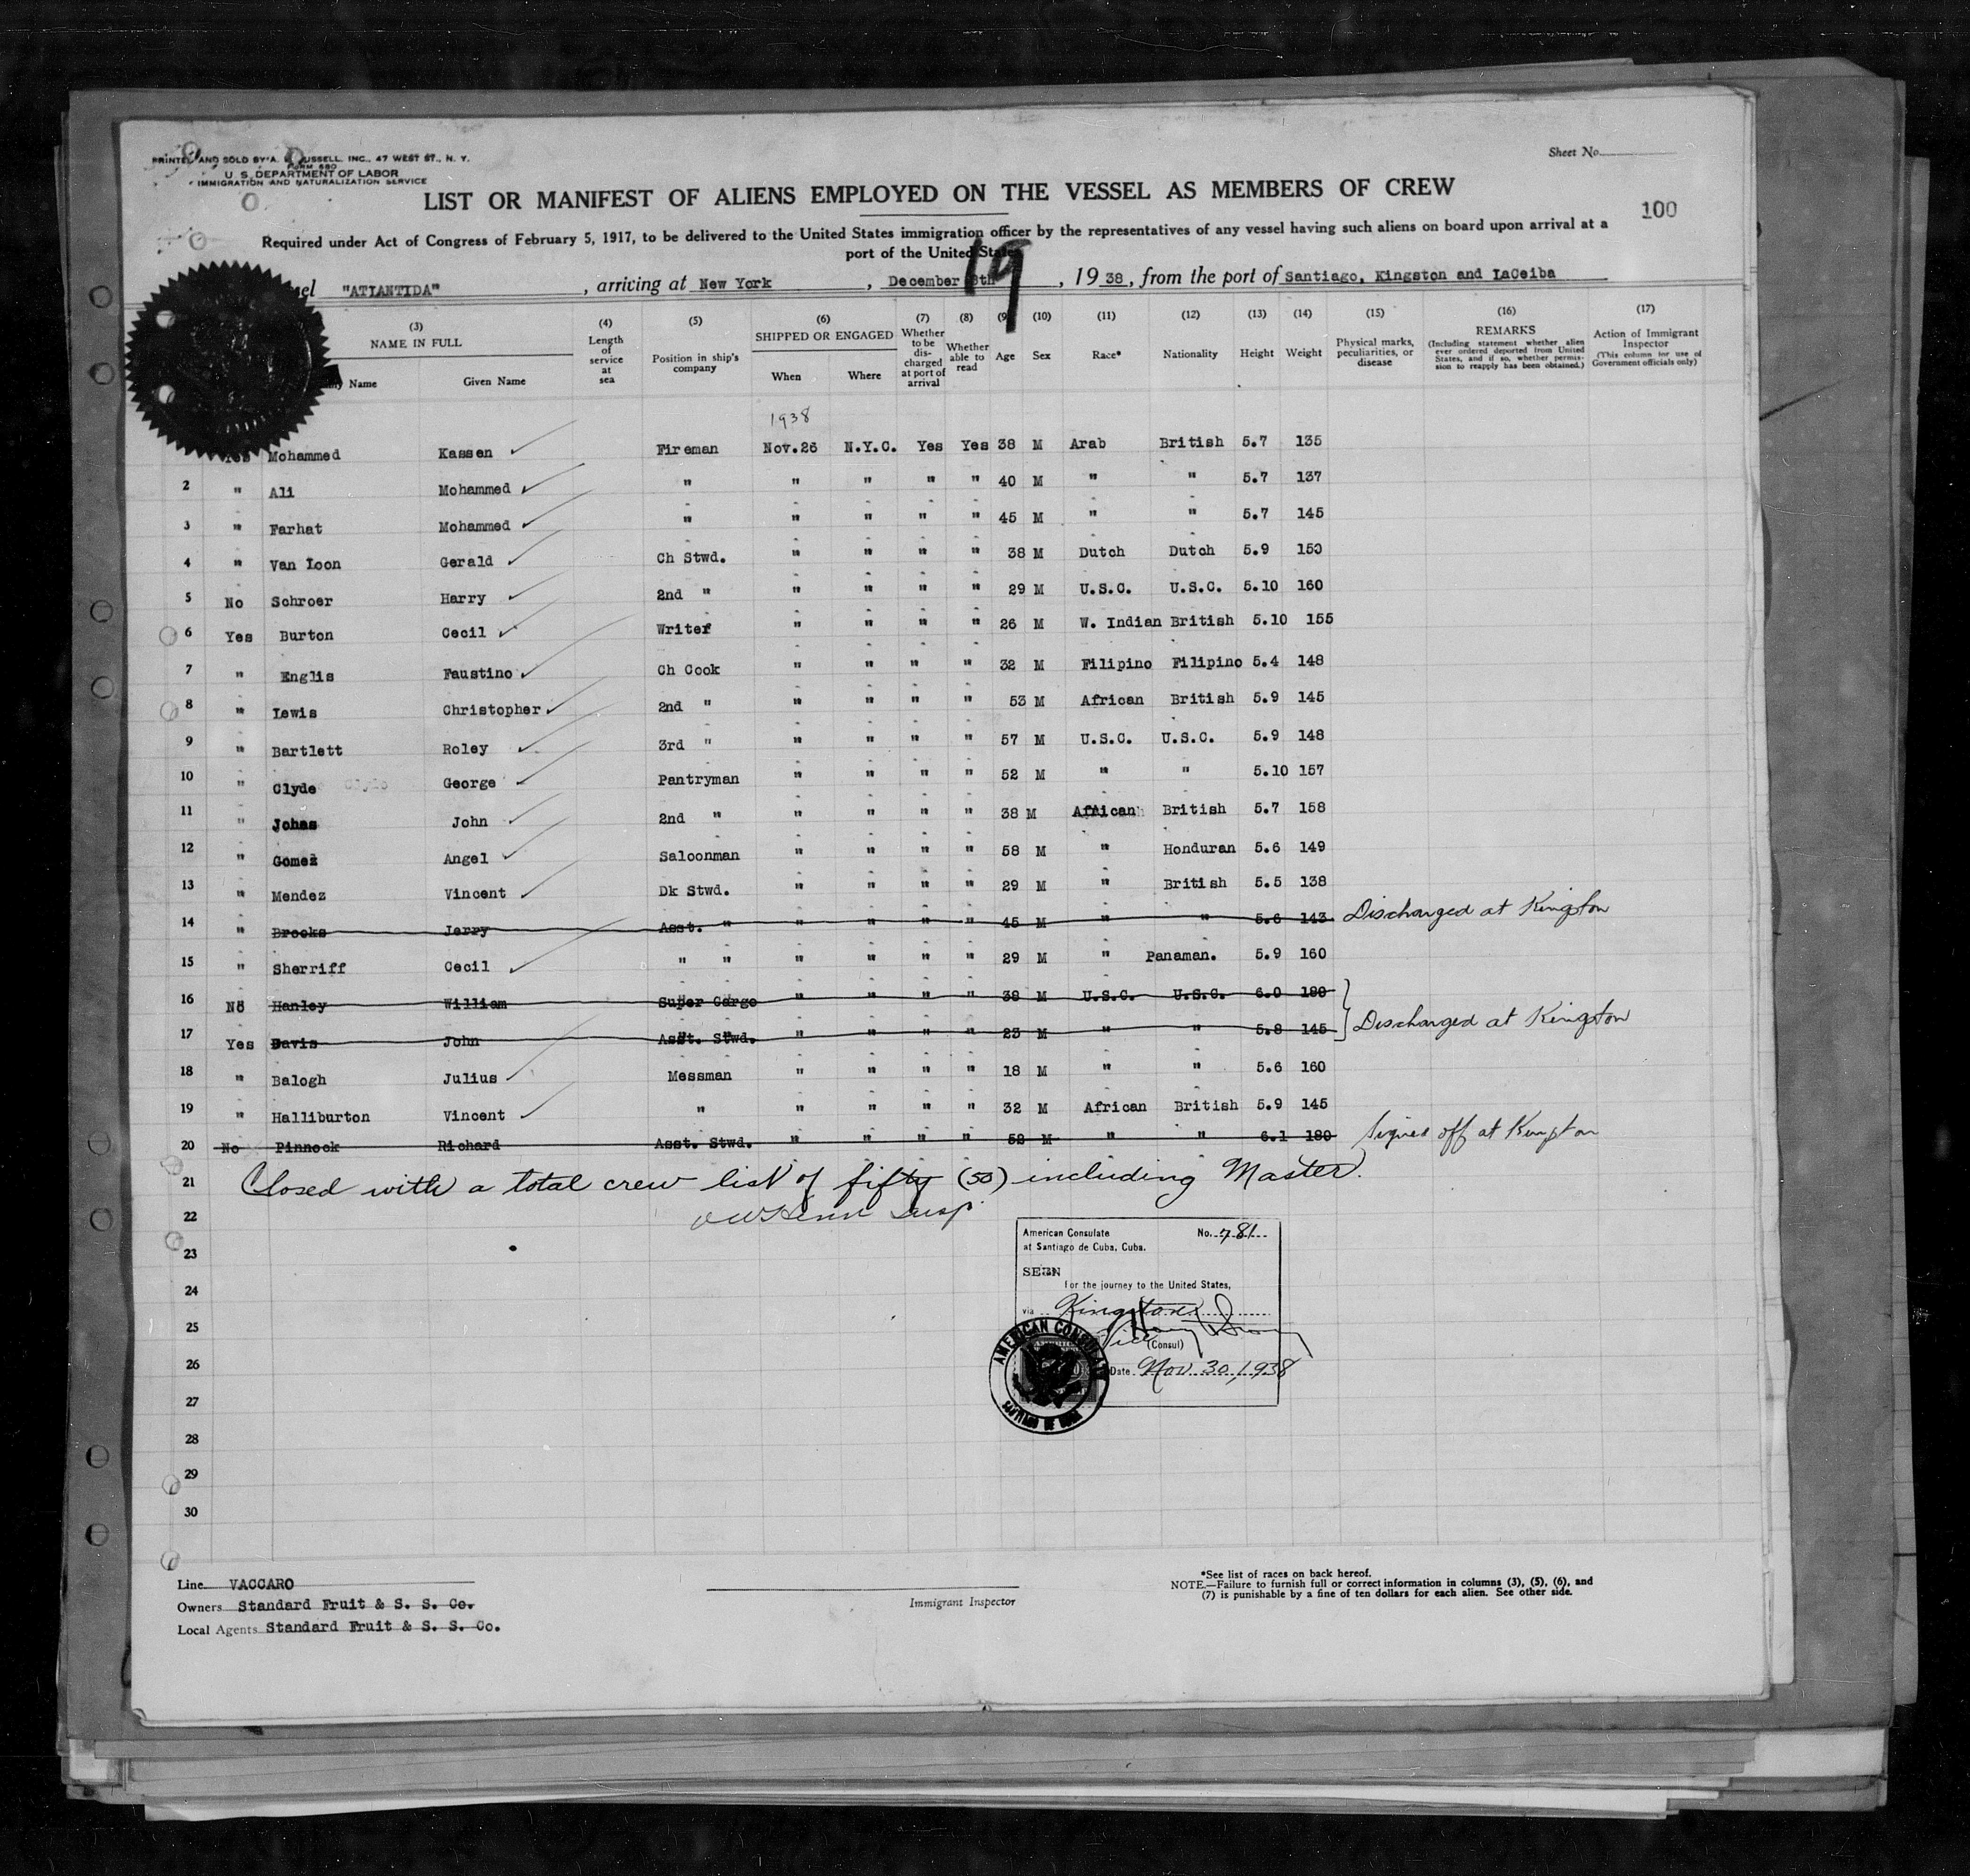 PRINTED AND SOLD BY A. RUSSELL, INC., 47 WEST ST., N. Y.
FORM 680
U. S. DEPARTMENT OF LABOR
IMMIGRATION AND NATURALIZATION SERVICE
Sheet No.
LIST OR MANIFEST OF ALIENS EMPLOYED ON THE VESSEL AS MEMBERS OF CREW
100
Required under Act of Congress of February 5, 1917, to be delivered to the United States immigration officer by the representatives of any vessel having such aliens on board upon arrival at a
port of the United States
19
"ATLANTIDA", arriving at New York, December 8th, 1938, from the port of Santiago, Kingston and LaCeiba
(3) (4) (5) (6) (7) (8) (9) (10) (11) (12) (13) (14) (15) (16) (17)
NAME IN FULL
Name
Given Name
Length of service at sea
Position in ship's company
SHIPPED OR ENGAGED
When
Where
Whether to be discharged at port of arrival
Whether able to read
Age
Sex
Race*
Nationality
Height
Weight
Physical marks, peculiarities, or disease
REMARKS
(Including statement whether alien ever ordered deported from United States, and if so, whether permission to reapply has been obtained.)
Action of Immigrant Inspector
(This column for use of Government officials only)
1938
Yes Mohammed Kassen Fireman Nov.26 N.Y.C. Yes Yes 38 M Arab British 5.7 135
2 " Ali Mohammed " " " " " 40 M " " 5.7 137
3 " Farhat Mohammed " " " " " 45 M " " 5.7 145
4 " Van Loon Gerald Ch Stwd. " " " " 38 M Dutch Dutch 5.9 150
5 No Schroer Harry 2nd " " " " " 29 M U.S.C. U.S.C. 5.10 160
6 Yes Burton Cecil Writer " " " " 26 M W. Indian British 5.10 155
7 " Englis Faustino Ch Cook " " " " 32 M Filipino Filipino 5.4 148
8 " Lewis Christopher 2nd " " " " " 53 M African British 5.9 145
9 " Bartlett Roley 3rd " " " " " 57 M U.S.C. U.S.C. 5.9 148
10 " Clyde Clyde George Pantryman " " " " 52 M " " 5.10 157
11 " Johas John 2nd " " " " " 38 M African British 5.7 158
12 " Gomez Angel Saloonman " " " " 58 M " Honduran 5.6 149
13 " Mendez Vincent Dk Stwd. " " " " 29 M " British 5.5 138
14 " Brooks Jerry Asst. " " " " " 45 M " " 5.6 143 Discharged at Kingston
15 " Sherriff Cecil " " " " " " 29 M " Panaman. 5.9 160
16 No Hanley William Super Cargo " " " " 38 M U.S.C. U.S.C. 6.0 180
17 Yes Davis John Asst. Stwd. " " " " 23 M " " 5.8 145 Discharged at Kingston
18 " Balogh Julius Messman " " " " 18 M " " 5.6 160
19 " Halliburton Vincent " " " " " 32 M African British 5.9 145
20 No Pinnock Richard Asst. Stwd. " " " " 52 M " " 6.1 180 Signed off at Kingston
21 Closed with a total crew list of fifty (50) including Master.
22
23
24
25
26
27
28
29
30
American Consulate No. 781
at Santiago de Cuba, Cuba.
SEEN
For the journey to the United States,
via Kingston
Vice (Consul)
Date Nov. 30, 1938
AMERICAN CONSULATE
SANTIAGO DE CUBA
Line VACCARO
Owners Standard Fruit & S. S. Co.
Local Agents Standard Fruit & S. S. Co.
Immigrant Inspector
*See list of races on back hereof.
NOTE.—Failure to furnish full or correct information in columns (3), (5), (6), and
(7) is punishable by a fine of ten dollars for each alien. See other side.